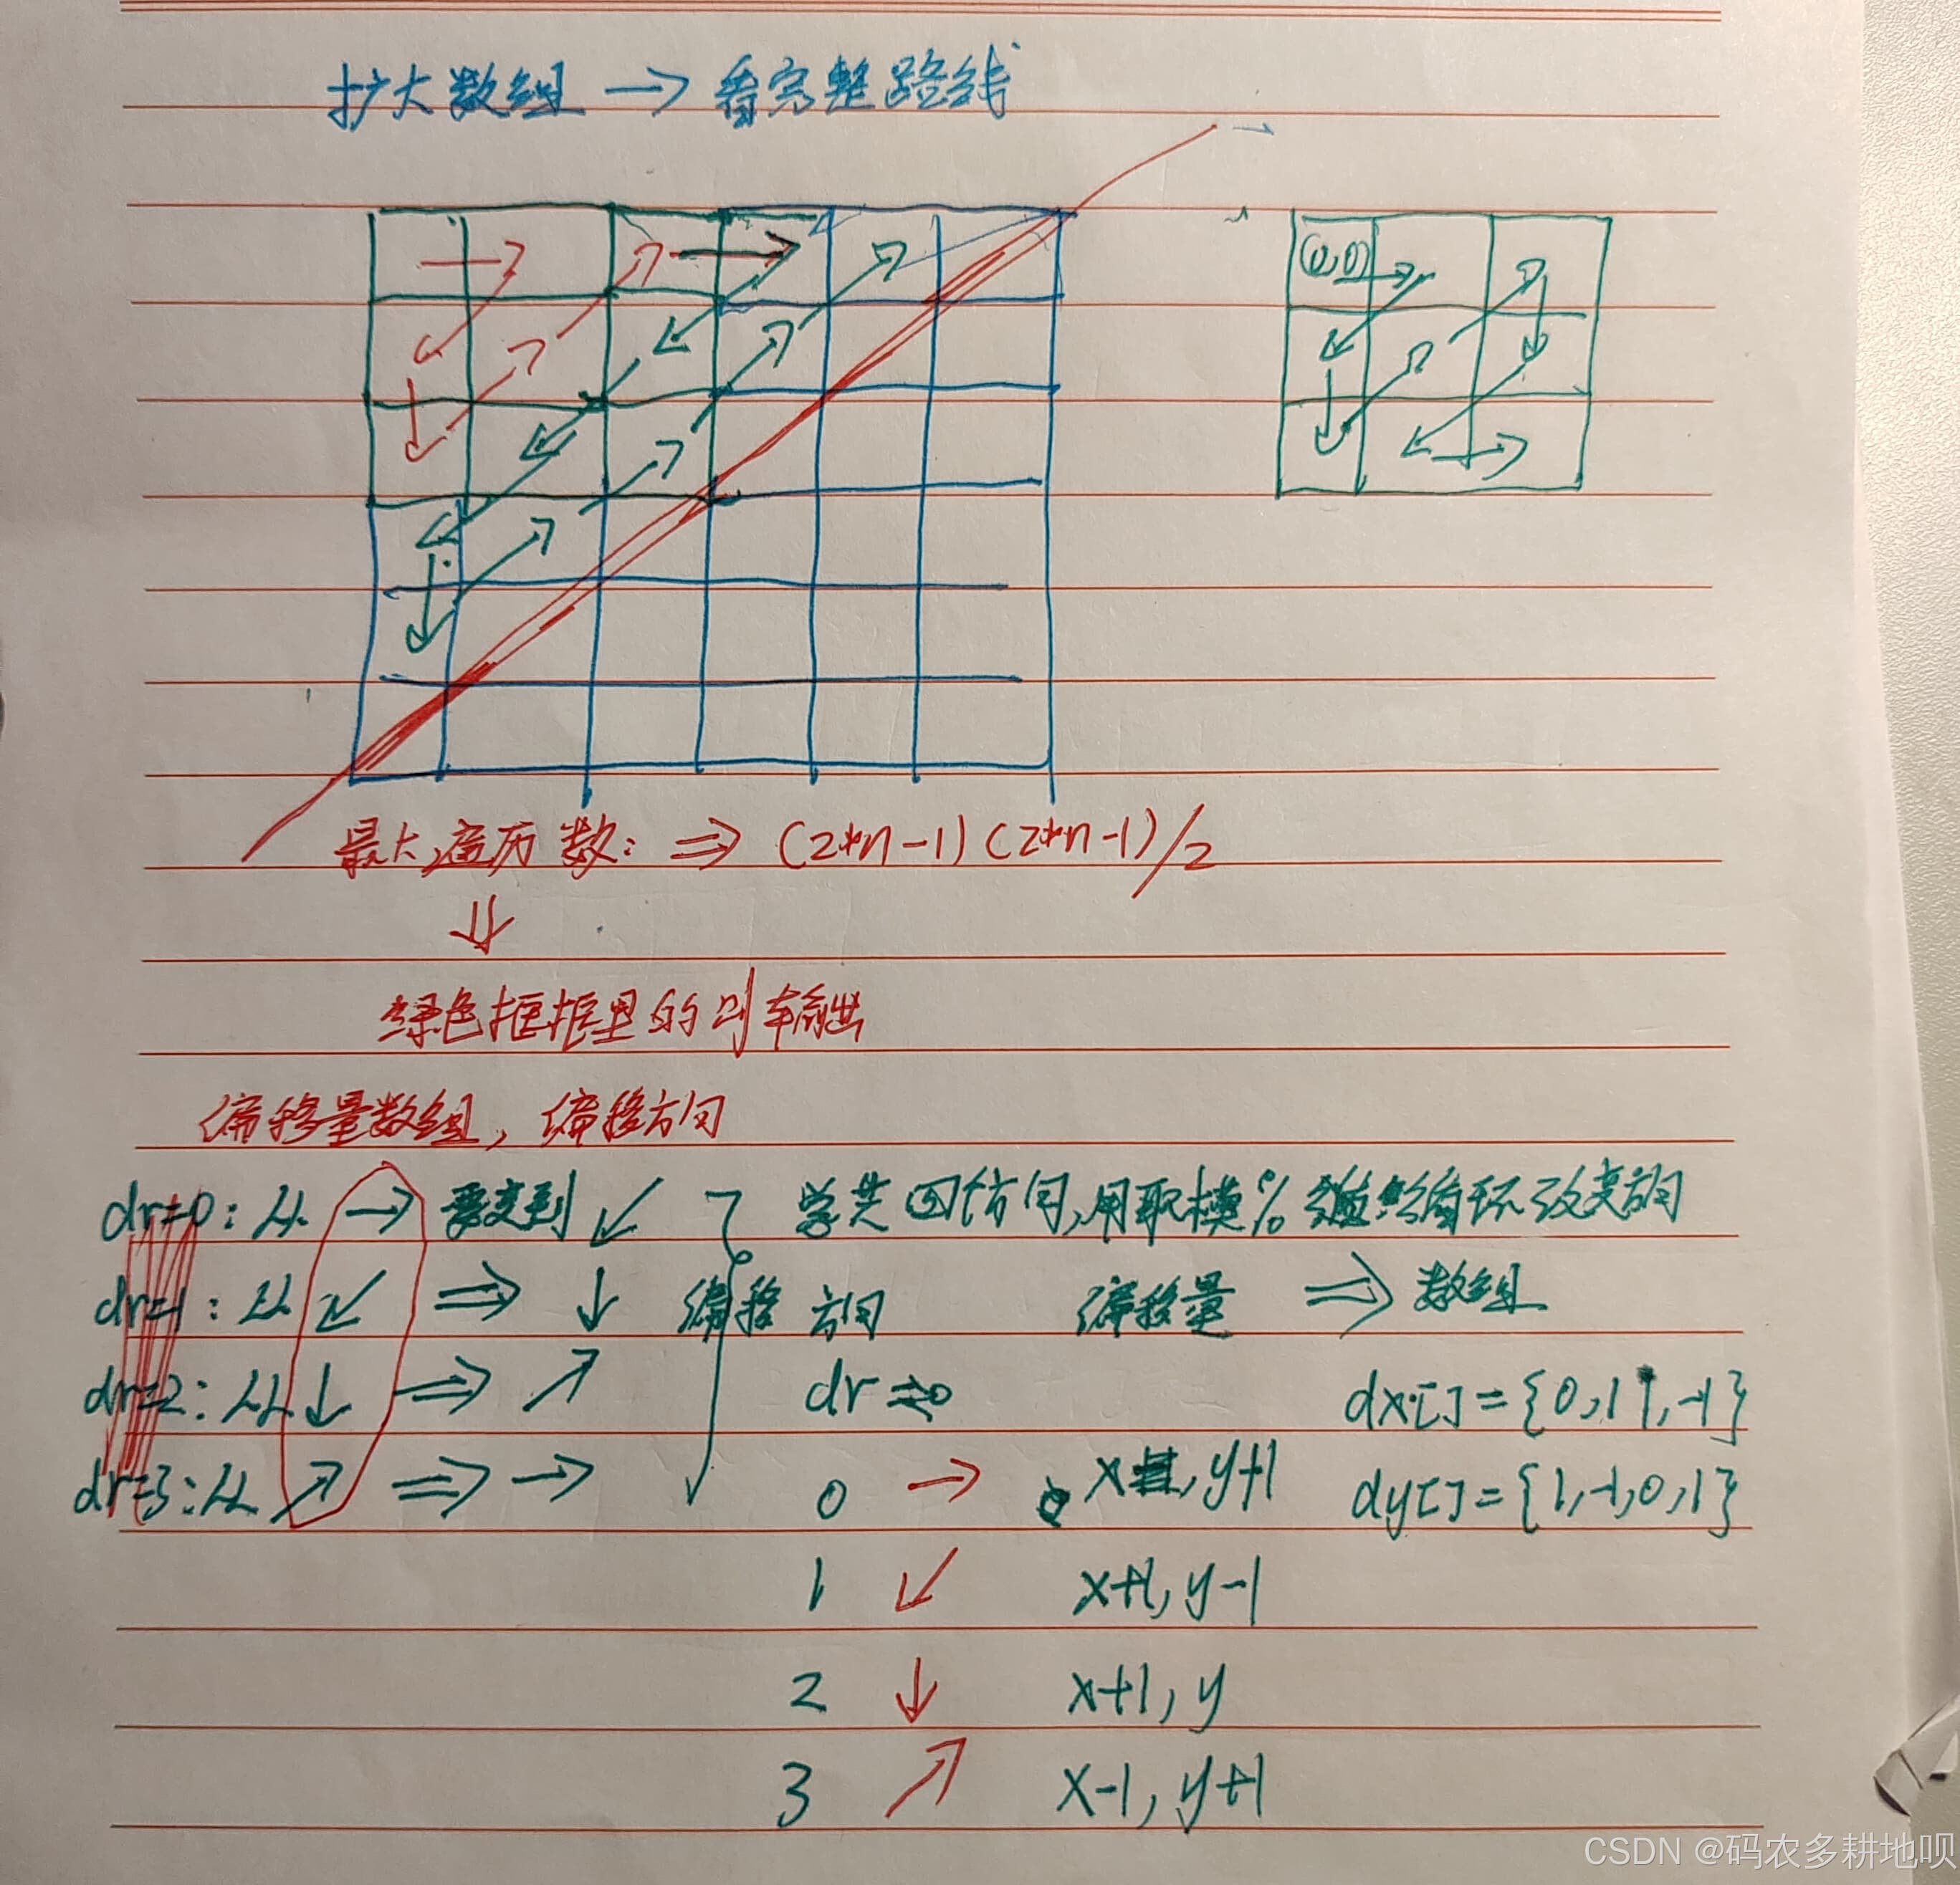 扩大数组 → 看完整路线
(0,0)
最大遍历数: ⇒ (2*n-1)(2*n-1)/2
⇓
绿色框框里的则输出
偏移量数组, 偏移方向
dr=0: 从 → 要变到 ↙ 共四个方向,用取模% 循环改变方向
dr=1: 从 ↙ ⇒ ↓ 偏移方向 偏移量 ⇒ 数组
dr=2: 从 ↓ ⇒ ↗ dr=0 dx[]={0,1,-1}
dr=3: 从 ↗ ⇒ → 0 → x, y+1 dy[]={1,-1,0,1}
1 ↙ x+1, y-1
2 ↓ x+1, y
3 ↗ x-1, y+1
CSDN @码农多耕地呗